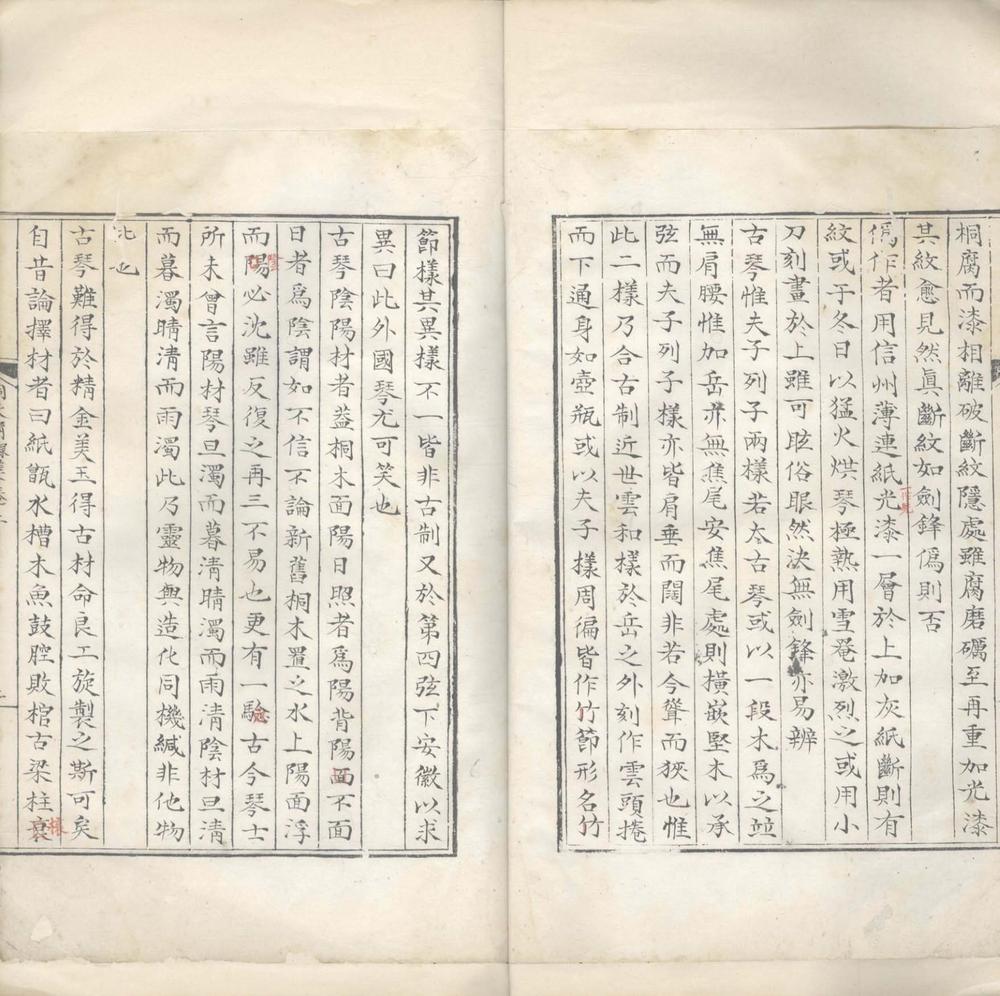 桐腐而漆相離破斷紋隱處雖腐磨礪至再重加光漆
其紋愈見然眞斷紋如劍鋒僞則否
僞作者用信州薄連紙光漆一層於上加灰紙斷則有
紋或于冬日以猛火烘琴極熱用雪罨激烈之或用小
刀刻畫於上雖可眩俗眼然決無劍鋒亦易辨
古琴惟夫子列子兩樣若太古琴或以一段木爲之並
無肩腰惟加岳亦無焦尾安焦尾處則橫嵌堅木以承
弦而夫子列子樣亦皆肩垂而闊非若今聳而狹也惟
此二樣乃合古制近世雲和樣於岳之外刻作雲頭捲
而下通身如壺瓶或以夫子樣周徧皆作竹節形名竹
節樣其異樣不一皆非古制又於第四弦下安徽以求
異曰此外國琴尤可笑也
古琴陰陽材者蓋桐木面陽日照者爲陽背陽面不面
日者爲陰謂如不信不論新舊桐木置之水上陽面浮
而陽必沈雖反復之再三不易也更有一驗古今琴士
陰
所未曾言陽材琴旦濁而暮清晴濁而雨清陰材旦清
而暮濁晴清而雨濁此乃靈物與造化同機緘非他物
比也
古琴難得於精金美玉得古材命良工旋製之斯可矣
自昔論擇材者曰紙甑水槽木魚鼓腔敗棺古梁柱衰
榱